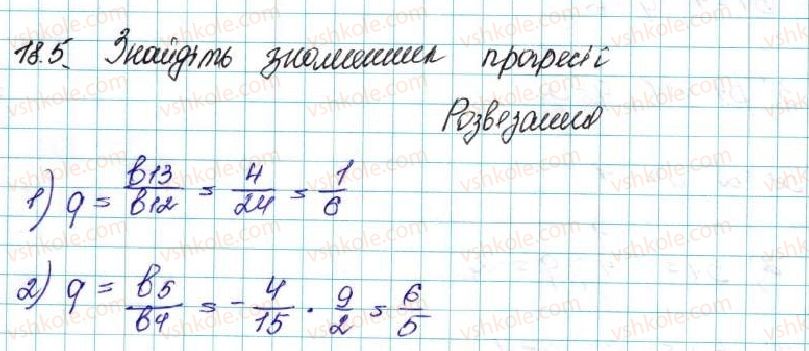 18.5. Знайдіть знаменник прогресії
Розвязання
1) q = b13/b12 = 4/24 = 1/6
2) q = b5/b4 = -4/15 · 9/2 = 6/5